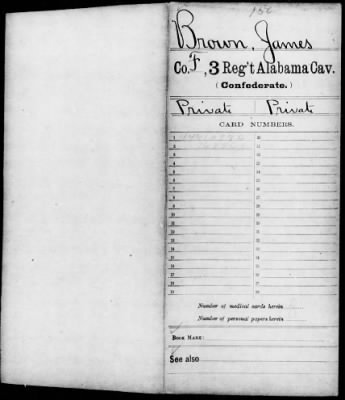 Brown, James
Co. F, 3 Reg't Alabama Cav.
(Confederate.)
Private Private
CARD NUMBERS.
1 20
2 21
3 22
4 23
5 24
6 25
7 26
8 27
9 28
10 29
11 30
12 31
13 32
14 33
15 34
16 35
17 36
18 37
19 38
Number of medical cards herein
Number of personal papers herein
BOOK MARK:
See also